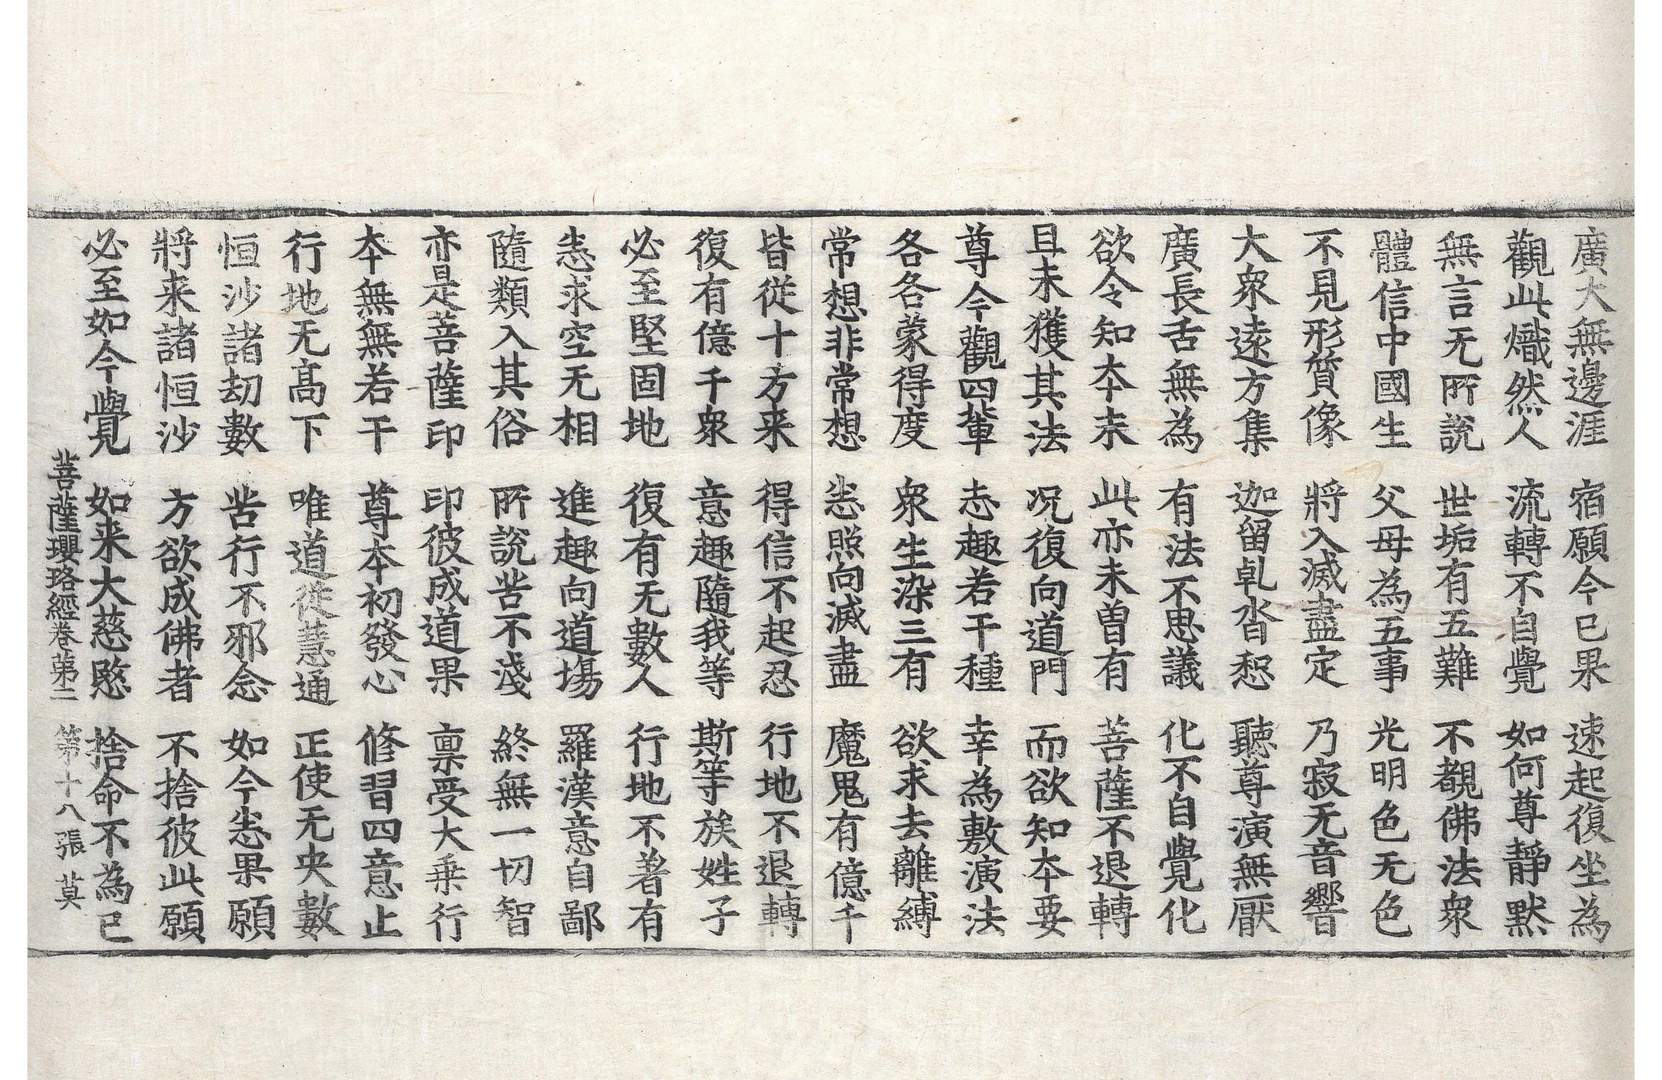 廣大無邊涯　宿願今已果　速起復坐為
觀此熾然人　流轉不自覺　如何尊靜默
無言无所說　世垢有五難　不覩佛法衆
體信中國生　父母為五事　光明色无色
不見形質像　將入滅盡定　乃寂无音響
大衆遠方集　迦留乹沓惒　聽尊演無厭
廣長舌無為　有法不思議　化不自覺化
欲令知夲末　此亦未曽有　菩薩不退轉
且未獲其法　况復向道門　而欲知夲要
尊今觀四輩　志趣若干種　幸為敷演法
各各蒙得度　衆生染三有　欲求去離縛
常想非常想　恙照向滅盡　魔鬼有億千
皆從十方来　得信不起忍　行地不退轉
復有億千衆　意趣隨我等　斯等族姓子
必至堅固地　復有无數人　行地不著有
恙求空无相　進趣向道場　羅漢意自鄙
隨類入其俗　所說苦不淺　終無一切智
亦是菩薩印　印彼成道果　稟受大乗行
夲無無若干　尊夲初發心　修習四意止
行地无髙下　唯道從慧通　正使无央數
恒沙諸劫數　苦行不邪念　如今恙果願
將来諸恒沙　方欲成佛者　不捨彼此願
必至如今覺　如来大慈愍　捨命不為已
菩薩瓔珞經卷第二　第十八張　莫